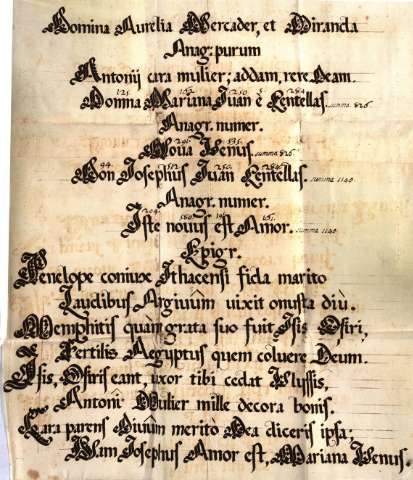 Domina Aurelia Mercader, et Miranda
Anagr. purum
Antonij cara mulier; addam, rere Deam.
125. 162. 250. 5. 284.
Domna Mariana Juan è Centellas. summa 826.
Anagr. numer.
291. 535.
Nova Venus. summa 826.
94. 512. 250. 284.
Don Josephus Juan Centellas. summa 1140.
Anagr. numer.
204. 580. 195. 161.
Iste novus est Amor. summa 1140.
Epigr.
Penelope coniux Ithacensi fida marito
Laudibus Argivûm vixit onusta diù.
Memphitis quàm grata suo fuit Isis Osiri,
Fertilis Aegyptus quem côluere Deum.
Isis, Osiris eant, uxor tibi cedat Ulyssis,
Antonî Mulier mille decora bonis.
Cara parens Divûm meritò Dea diceris ipsa:
Nam Josephus Amor est, Mariana Venus.